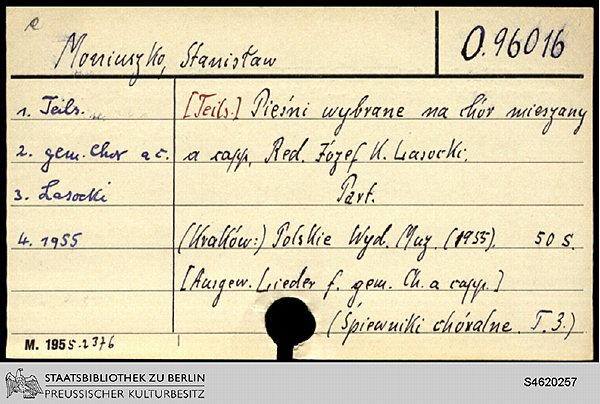 e
Moniuszko, Stanisław
O.96016
1. Teils.
[Teils.] Pieśni wybrane na chór mieszany
2. gem. Chor a c.
a capp. Red. Józef K. Lasocki.
3. Lasocki
Part.
4. 1955
(Kraków:) Polskie Wyd. Muz. (1955). 50 S.
[Ausgew. Lieder f. gem. Ch. a capp.]
(Śpiewniki chóralne. T. 3.)
M. 1955.2376
STAATSBIBLIOTHEK ZU BERLIN
PREUSSISCHER KULTURBESITZ
S4620257